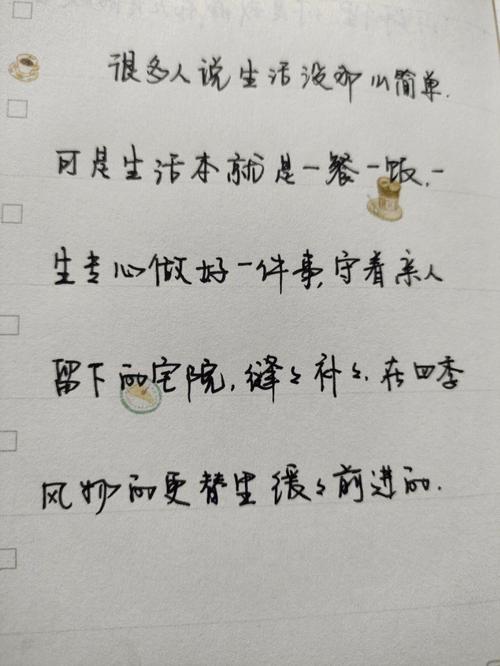 很多人说生活没那么简单.
可是生活本就是一餐一饭.一
生专心做好一件事,守着亲人
留下的宅院,缝々补々.在四季
风妙的更替里缓々前进的.